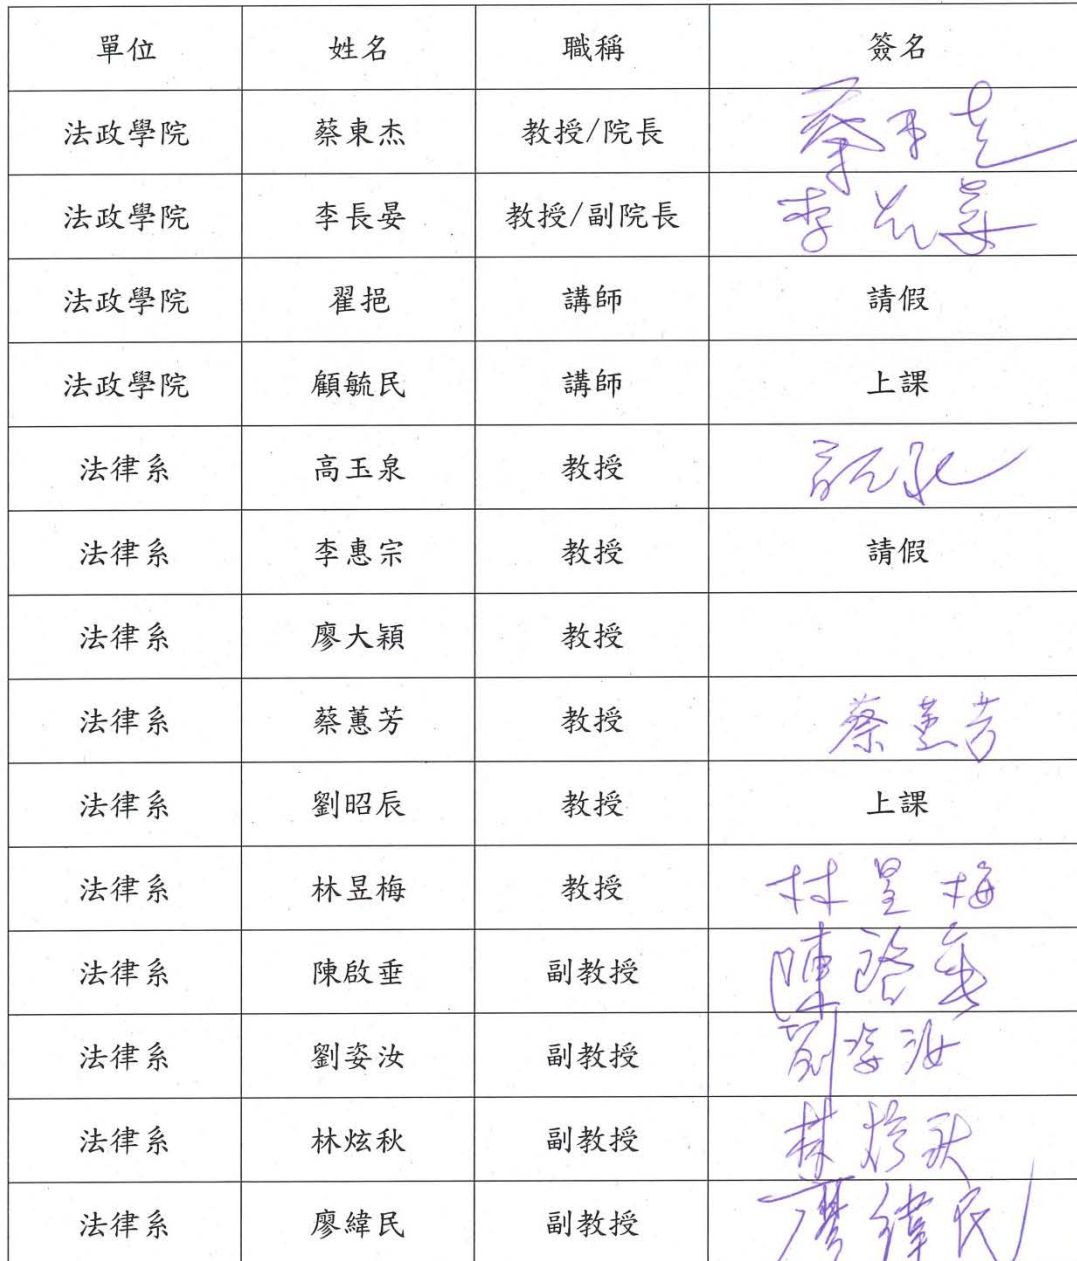 單位 姓名 職稱 簽名
法政學院 蔡東杰 教授/院長 蔡東杰
法政學院 李長晏 教授/副院長 李長晏
法政學院 翟挹 講師 請假
法政學院 顧毓民 講師 上課
法律系 高玉泉 教授
法律系 李惠宗 教授 請假
法律系 廖大穎 教授
法律系 蔡蕙芳 教授 蔡蕙芳
法律系 劉昭辰 教授 上課
法律系 林昱梅 教授 林昱梅
法律系 陳啟垂 副教授 陳啟垂
法律系 劉姿汝 副教授 劉姿汝
法律系 林炫秋 副教授 林炫秋
法律系 廖緯民 副教授 廖緯民